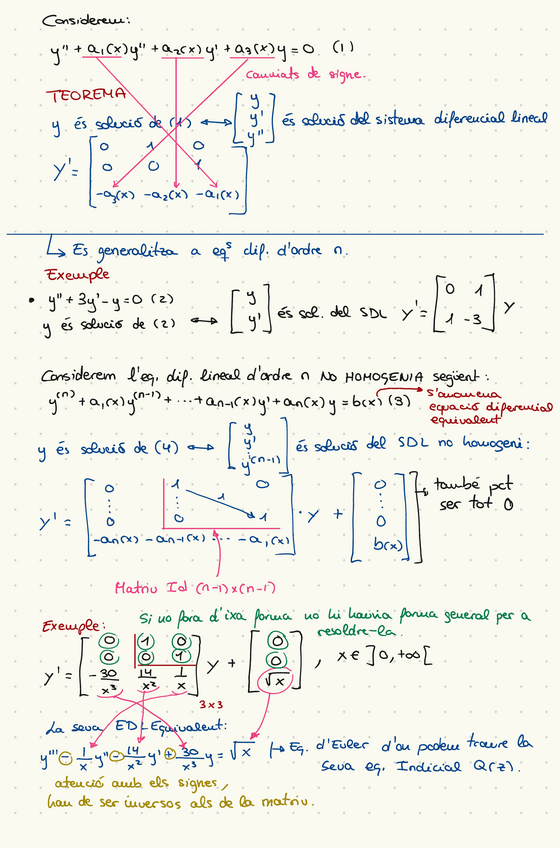 Considerem:
y'' + a₁(x)y'' + a₂(x)y' + a₃(x)y = 0 (1)
canviats de signe.
TEOREMA
y és solució de (1) ⟷ [y y' y''] és solució del sistema diferencial lineal
Y' = [0 1 0
0 0 1
-a₃(x) -a₂(x) -a₁(x)]
↳ Es generalitza a eqˢ dif. d'ordre n.
Exemple
• y'' + 3y' - y = 0 (2)
y és solució de (2) ⟷ [y y'] és sol. del SDL Y' = [0 1
1 -3] Y
Considerem l'eq. dif. lineal d'ordre n NO HOMOGENIA següent:
y⁽ⁿ⁾ + a₁(x)y⁽ⁿ⁻¹⁾ + ... + aₙ₋₁(x)y' + aₙ(x)y = b(x) (3)
s'anomena
equació diferencial
equivalent
y és solució de (4) ⟷ [y y' ⋮ y⁽ⁿ⁻¹⁾] és solució del SDL no homogeni:
Y' = [0 1 0
⋮ ⋮ 1
0 0 1
-aₙ(x) -aₙ₋₁(x) ... -a₁(x)] · Y + [0 ⋮ 0 b(x)]
també pot
ser tot 0
Matriu Id (n-1)x(n-1)
Exemple: Si no fora d'ixa forma no hi hauria forma general per a
resoldre-la.
Y' = [0 1 0
0 0 1
-30/x³ 14/x² 1/x] Y + [0 0 √x], x ∈ ]0,+∞[
3x3
La seva ED-Equivalent:
y''' - 1/x y'' - 14/x² y' + 30/x³ y = √x ↦ Eq. d'Euler d'on podem traure la
seva eq. Indicial Q(z).
atenció amb els signes,
han de ser inversos als de la matriu.